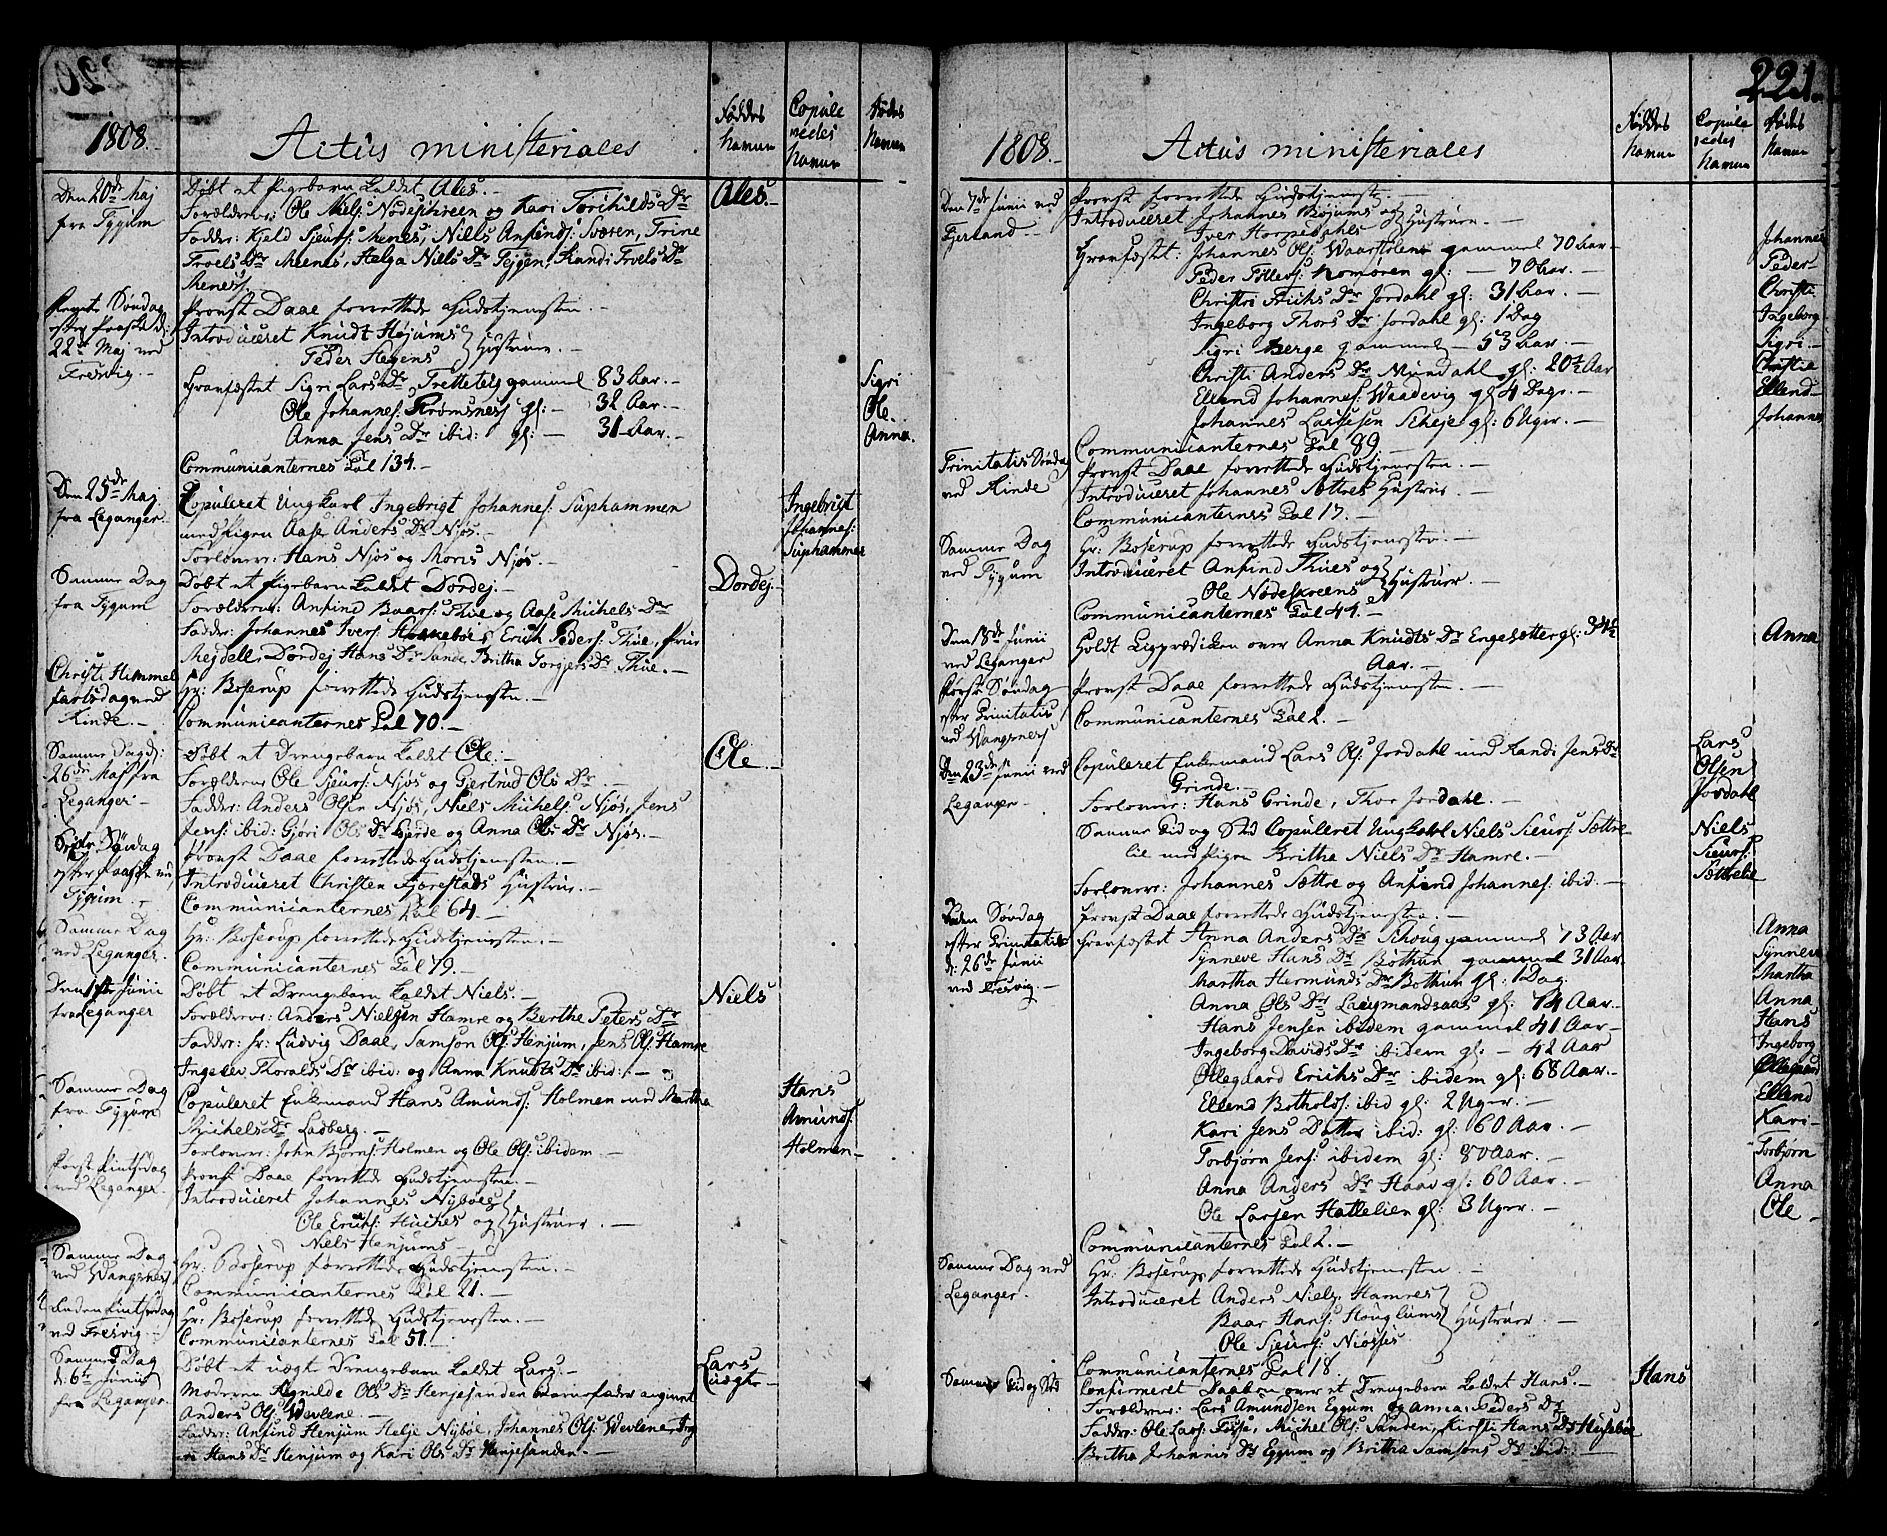 1808.
Actus ministeriales
Føddes Navne
Copuleredes Navne
Dødes Navne
Den 20de Maj fra Tygum
Døbt et Pigebarn kaldet Ales.
Ales.
Forældrene: Ole Niels: Nødeskreen og Kari Torchilds Dr
Fadder: Kield Sjeurs: Menes, Niels Anfinds: Sværen, Trine
Troels Dr Meenes, Helga Niels Dr Tejgen, Randi Troels Dr
Menes.
22de Maj ved Fresvig.
Provst Daae forrettede Gudstjenesten.
Introduceret Knudt Højums
Peder Hegens
Hustruer.
Gravfæstet Sigri Lars Dr Tretteteig gammel 83 Aar.
Sigri
Ole Johannes: Strømsnes gl: 32 Aar.
Ole
Anna Jens Dr ibid: gl: 31 Aar.
Anna.
Communicanternes Tal 134.
Den 25de Maj fra Leganger.
Copuleret Ungkarl Ingebrigt Johannes: Suphammen
Ingebrigt Johannes: Suphammer
med Pigen Aase Anders Dr Njøs.
Forlovere: Hans Njøs og Mons Njøs.
Samme Dag fra Tygum
Døbt et Pigebarn kaldet Dordej.
Dordej.
Forældrene: Anfind Baars: Thue og Aase Michels Dr
Fadder: Johannes Ivers: Erich Peders: Thue,
Mejdell, Dordej Hans Dr Sande, Britha Torgiers Dr Thue.
Christi Himmelfartsdag ved Rinde.
Hr: Boserup forrettede Gudstjenesten.
Communicanternes Tal 70.
Samme Dag d: 26de Maj fra Leganger
Døbt et Drengebarn kaldet Ole.
Ole.
Forældrene Ole Sjeurs: Njøs og Gjertrud Ols Dr
Fadder: Anders Olsen Njøs, Niels Michels: Njøs, Jens
Jens: ibid: Gjøri Ols Dr Gierde og Anna Ols Dr Njøs.
Søndag efter Paaske ved Tygum.
Provst Daae forrettede Gudstjenesten.
Introduceret Christen Fjærestads Hustrue.
Communicanternes Tal 64.
Samme Dag ved Leganger.
Hr: Boserup forrettede Gudstjenesten.
Communicanternes Tal 79.
Den 1ste Junii fra Leganger
Døbt et Drengebarn kaldet Niels.
Niels
Forældrene: Anders Nielsen Hamre og Berthe Peters Dr
Fadder: Hr: Ludvig Daae, Samson Ols: Henjum, Jens Ols: Hamre
Ingelev Thoralds Dr ibid: og Anna Knudts Dr ibid:
Samme Dag fra Tygum
Copuleret Enkemand Hans Amunds: Holmen med Martha
Hans Amunds: Holmen
Michels Dr Ladberg.
Forlovere: John Bjørns: Holmen og Ole Ols: ibidem.
Første Pintsedag ved Leganger.
Provst Daae forrettede Gudstjenesten.
Introduceret Johannes Nybøes
Ole Erichs: Huches og
Niels Henjums
Hustruer.
Samme Dag ved Wangsnes
Hr: Boserup forrettede Gudstjenesten.
Communicanternes Tal 21.
Anden Pintsedag ved Fresvig.
Hr: Boserup forrettede Gudstjenesten.
Communicanternes Tal 51.
Samme Dag d: 6te Junii fra Leganger.
Døbt et uægte Drengebarn kaldet Lars.
Lars uægte
Moderen Ragnilde Ols Dr Henjesanden Barnefader angivet
Anders Ols: Wevlene.
Fadder: Anfind Henjum Helje Nybøe, Johannes Ols: Wevlene,
Hans Dr Henjum og Kari Ols Dr Henjesanden.
221.
1808.
Actus ministeriales
Føddes Navne
Copuleredes Navne
Dødes Navne
Den 7de Junii ved Fjærland
Provst forrettede Gudstjenesten.
Introduceret Johannes Bøjums og
Iver Horpedahls
Hustruer.
Gravfæstet: Johannes Ols: gammel 70 Aar.
Johannes
Peder Tollevs: gl: 70 Aar.
Peder
Christi Erichs Dr Jordahl gl: 31 Aar.
Christi
Ingeborg Thors Dr Jordahl gl: 1 Dag
Ingeborg
Sigri Berge gammel 53 Aar.
Sigri
Christi Anders Dr Mundahl gl: 20½ Aar
Christie
Ellend Johannes: Waadevig gl: 4 Dage.
Ellend
Johannes Lassesen Scheje gl: 6 Uger.
Johannes
Communicanternes Tal 89
Trinitatis Søndag ved Rinde
Provst Daae forrettede Gudstjenesten.
Introduceret Johannes Sættres Hustrue.
Communicanternes Tal 17.
Samme Dag ved Tygum
Hr: Boserup forrettede Gudstjenesten.
Introduceret Anfind Thues og
Ole Nødeskreens
Hustruer.
Communicanternes Tal 44.
Den 18de Junii ved Leganger
Holdt Ligprædiken over Anna Knudts Dr Engesætter gl: 34½
Anna
Aar.
Første Søndag efter Trinitatis ved Wangsnes
Provst Daae forrettede Gudstjenesten.
Communicanternes Tal 2.
Den 23de Junii ved Leganger.
Copuleret Enkemand Lars Ols: Jordahl med Randi Jens Dr
Lars Olsen Jordahl
Grinde.
Forlovere: Hans Grinde, Thor Jordahl.
Samme Tid og Sted Copuleret Ungkarl Niels Sieurs: Sættre-
Niels Sieurs: Sættrelie
lie med Pigen Britha Niels Dr Hamre.
Forlovere: Johannes Sættre og Anfind Johannes: ibid.
Anden Søndag efter Trinitatis d: 26de Junii ved Fresvig.
Provst Daae forrettede Gudstjenesten.
Gravfæstet Anna Anders Dr Schoug gammel 73 Aar
Anna
Synneve Hans Dr Bothun gammel 31 Aar.
Synneve
Martha Hermunds Dr Bothun gl: 1 Dag
Martha
Anna Ols Dr Laugmandsaas gl: 74 Aar.
Anna
Hans Jensen ibidem gammel 41 Aar
Hans
Ingeborg Davids Dr ibidem gl: 42 Aar
Ingeborg
Ollegaard Erichs Dr ibidem gl: 68 Aar.
Ollegaard
Ellend Botholds: ibid gl: 2 Uger.
Ellend
Kari Jens Datter ibid: gl: 60 Aar.
Kari
Torbjørn Jens: ibidem gl: 80 Aar.
Torbjørn
Anna Anders Dr Haav gl: 60 Aar.
Anna
Ole Larsen Hattelien gl: 3 Uger.
Ole
Communicanternes Tal 2.
Samme Dag ved Leganger.
Hr: Boserup forrettede Gudstjenesten.
Introduceret Anders Niels: Hamres
Baar Hans: Houglums
Ole Sjeurs: Niøses
Hustruer.
Communicanternes Tal 18.
Samme Tid og Sted
Confirmeret Daaben over et Drengebarn kaldet Hans.
Hans
Forældrene: Lars Amundsen Eggum og Anna Peders Dr
Fadder: Ole Lars: Michel Ols: Sanden, Kirsti Hans Dr Husebøe
Britha Johannis Dr Eggum og Britha Samsons Dr ibid: